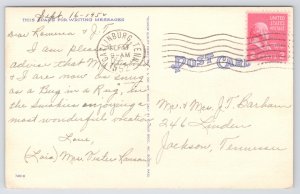 Sept 16-1954
THIS SPACE FOR WRITING MESSAGES
Dear Romaine & J.T.
I am pleased to
advise that Mr.
& I are now as snug
as a Bug in a Rug, in
the Smokies enjoying a
most wonderful vacation
Love,
(Lois) Mrs. Vester
GATLINBURG, TENN.
SEP 17
9 - AM
POST CARD
Mr. & Mrs. J.T. Barham
246 Linden
Jackson, Tennessee